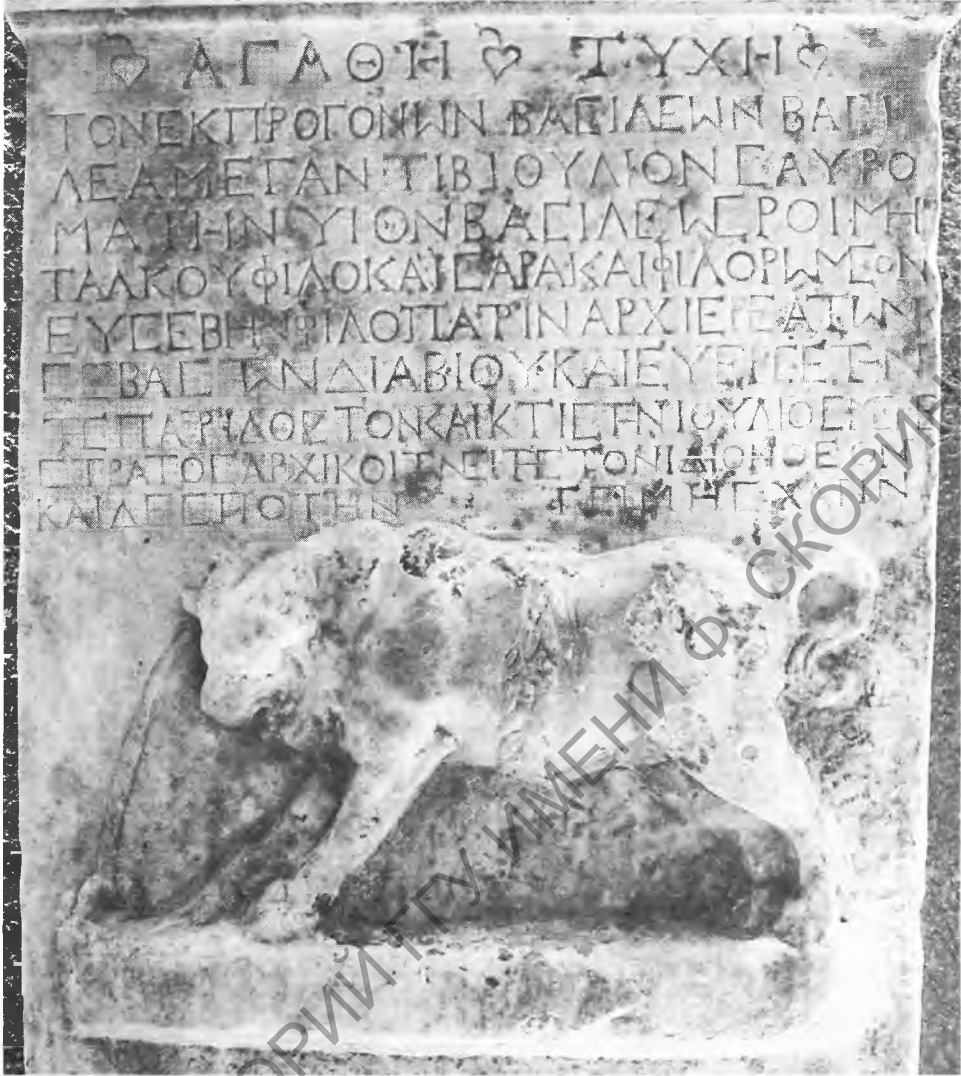 ΑΓΑΘΗ ΤΥΧΗ
ΤΟΝΕΚΠΡΟΓΟΝΩΝ ΒΑΣΙΛΕΩΝ ΒΑΣΙ
ΛΕΑΜΕΓΑΝ ΤΙΒΙΟΥΛΙΟΝ ΣΑΥΡΟ
ΜΑΤΗΝ ΥΙΟΝ ΒΑΣΙΛΕΩΣ ΡΟΙΜΗ
ΤΑΛΚΟΥ ΦΙΛΟΚΑΙΣΑΡΑ ΚΑΙ ΦΙΛΟΡΩΜΕΟΝ
ΕΥΣΕΒΗΝ ΦΙΛΟΠΑΤΡΙΝ ΑΡΧΙΕΡΕΑ ΤΩΝ
ΣΕΒΑΣΤΩΝ ΔΙΑ ΒΙΟΥ ΚΑΙ ΕΥΕΡΓΕΤΗΝ
ΤΗΣ ΠΑΤΡΙΔΟΣ ΤΟΝ ΚΑΙ ΚΤΙΣΤΗΝ ΙΟΥΛΙΟΣ
ΣΤΡΑΤΟΣ ΑΡΧΙΚΟΙΤΩΝΕΙΤΗΣ ΤΟΝ ΙΔΙΟΝ ΘΕΟΝ
ΚΑΙ ΔΕΣΠΟΤΗΝ ΤΕΙΜΗΣ ΧΑΡΙΝ
РИЙ ГГУ ИМЕНИ Ф. СКОРИ